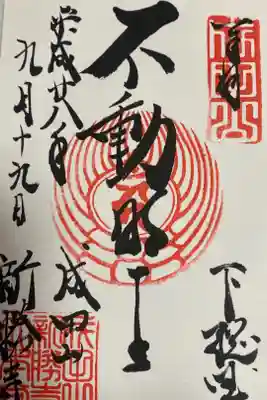 奉拝
下総国
不動明王
成田山
新勝寺
平成廿八年
九月十九日